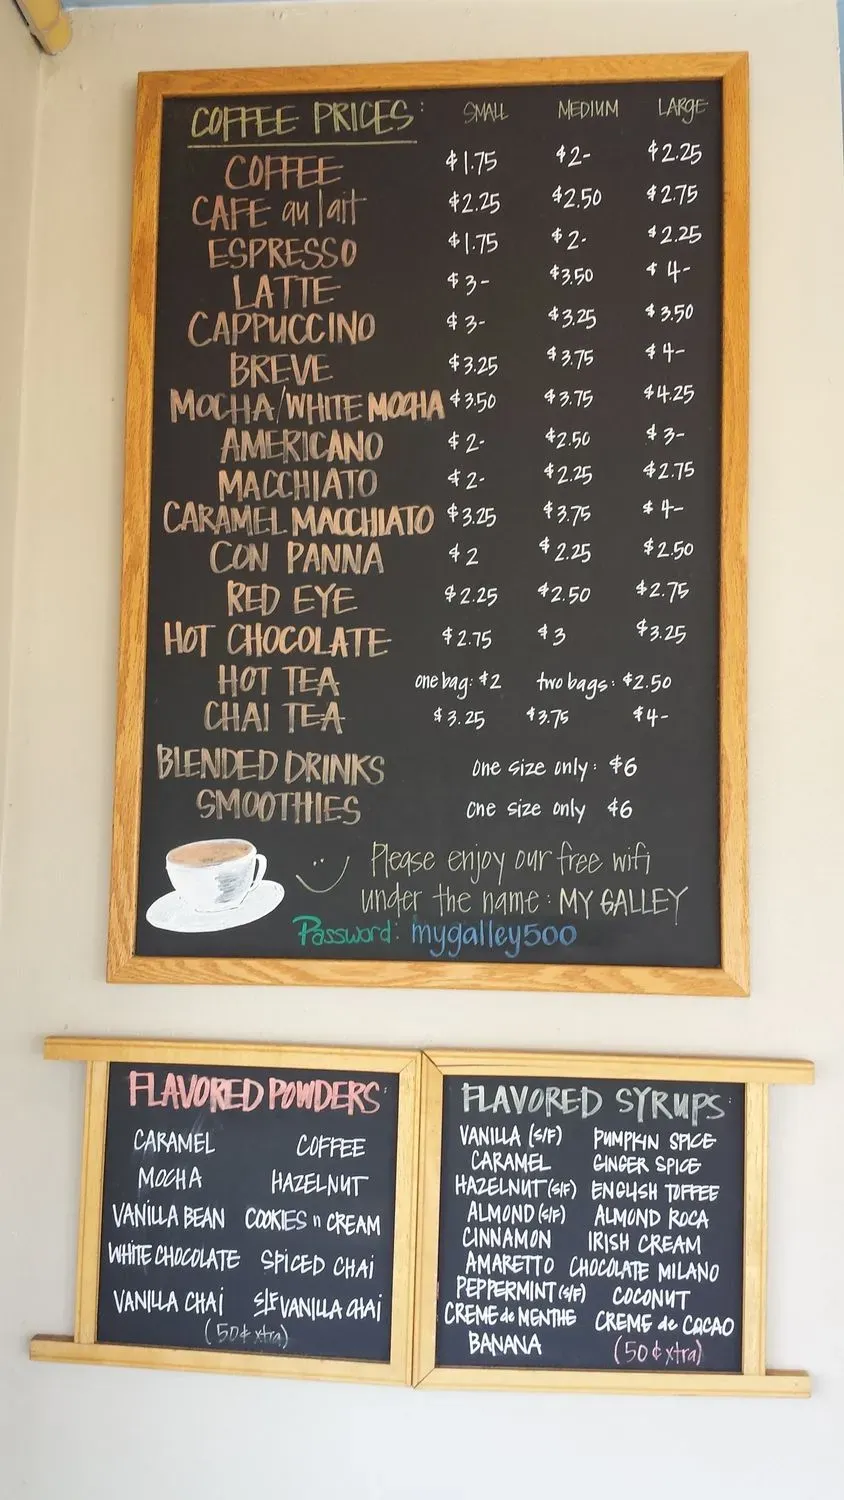 COFFEE PRICES: SMALL MEDIUM LARGE
COFFEE $1.75 $2- $2.25
CAFE au lait $2.25 $2.50 $2.75
ESPRESSO $1.75 $2- $2.25
LATTE $3- $3.50 $4-
CAPPUCCINO $3- $3.25 $3.50
BREVE $3.25 $3.75 $4-
MOCHA/WHITE MOCHA $3.50 $3.75 $4.25
AMERICANO $2- $2.50 $3-
MACCHIATO $2- $2.25 $2.75
CARAMEL MACCHIATO $3.25 $3.75 $4-
CON PANNA $2 $2.25 $2.50
RED EYE $2.25 $2.50 $2.75
HOT CHOCOLATE $2.75 $3 $3.25
HOT TEA one bag: $2 two bags: $2.50
CHAI TEA $3.25 $3.75 $4-
BLENDED DRINKS One size only: $6
SMOOTHIES One size only $6
Please enjoy our free wifi
under the name: MY GALLEY
Password: mygalley500
FLAVORED POWDERS:
CARAMEL COFFEE
MOCHA HAZELNUT
VANILLA BEAN COOKIES n CREAM
WHITE CHOCOLATE SPICED CHAI
VANILLA CHAI S/F VANILLA CHAI
(50¢ xtra)
FLAVORED SYRUPS:
VANILLA (S/F) PUMPKIN SPICE
CARAMEL GINGER SPICE
HAZELNUT (S/F) ENGLISH TOFFEE
ALMOND (S/F) ALMOND ROCA
CINNAMON IRISH CREAM
AMARETTO CHOCOLATE MILANO
PEPPERMINT (S/F) COCONUT
CREME de MENTHE CREME de CACAO
BANANA (50¢ xtra)